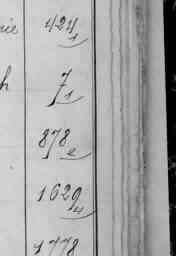 424 1
h 7 1
878 2
1629 4
1778